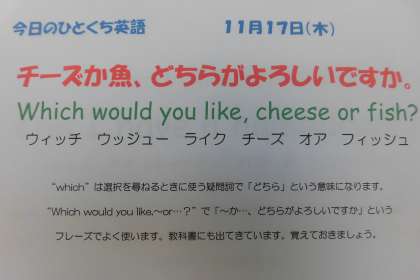 今日のひとくち英語　11月17日(木)
チーズか魚、どちらがよろしいですか。
Which would you like, cheese or fish?
ウィッチ　ウッジュー　ライク　チーズ　オア　フィッシュ
“which”は選択を尋ねるときに使う疑問詞で「どちら」という意味になります。
“Which would you like,~or…？”で「～か…、どちらがよろしいですか」という
フレーズでよく使います。教科書にも出てきています。覚えておきましょう。